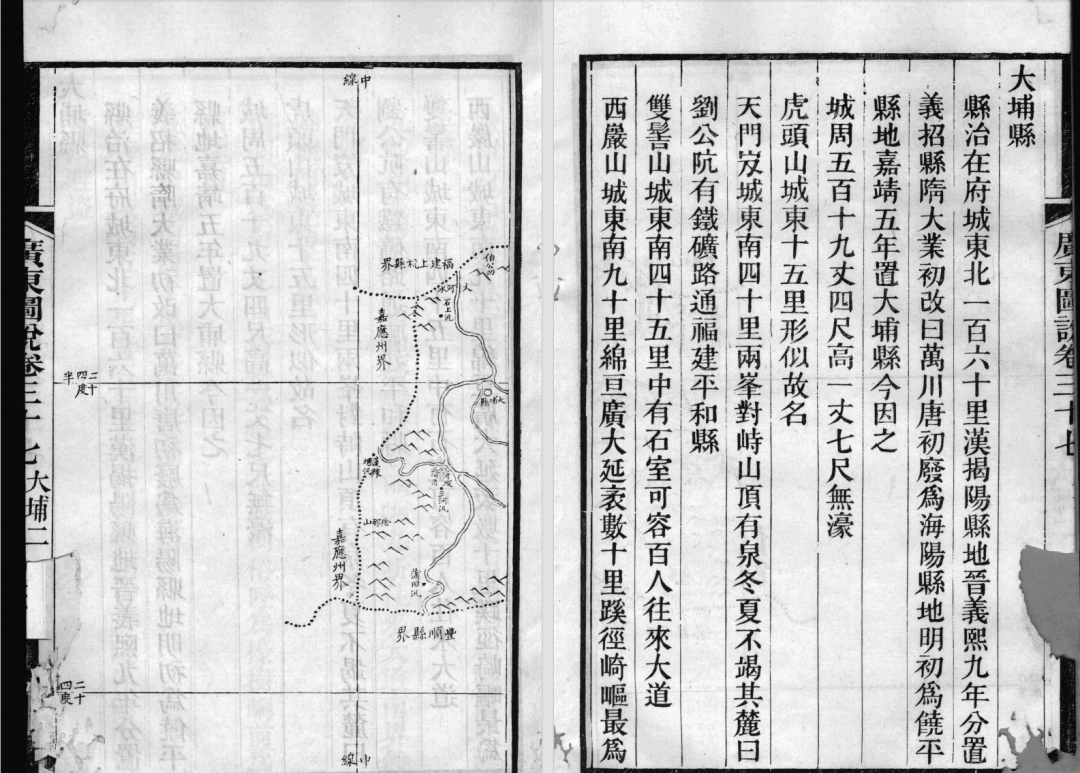 大埔縣
縣治在府城東北一百六十里漢揭陽縣地晉義熙九年分置
義招縣隋大業初改曰萬川唐初廢爲海陽縣地明初爲饒平
縣地嘉靖五年置大埔縣今因之
城周五百十九丈四尺高一丈七尺無濠
虎頭山城東十五里形似故名
天門岌城東南四十里兩峯對峙山頂有泉冬夏不竭其麓曰
劉公阬有鐵礦路通福建平和縣
雙髻山城東南四十五里中有石室可容百人往來大道
西巖山城東南九十里綿亘廣大延袤數十里蹊徑崎嶇最爲
廣東圖說卷三十七
中線
福建上杭縣界
石上汛
嘉應州界
大埔縣
二十四度半
三河汛
陰那山
嘉應州界
蒲田汛
豐順縣界
二十四度
中線
廣東圖說卷三十七 大埔二